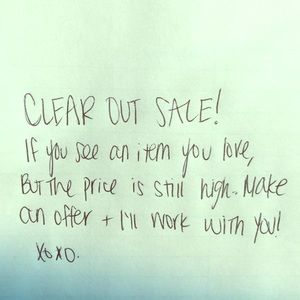 CLEAR OUT SALE!
If you see an item you love,
But the price is still high.. Make
an offer + I'll work with you!
xoxo.